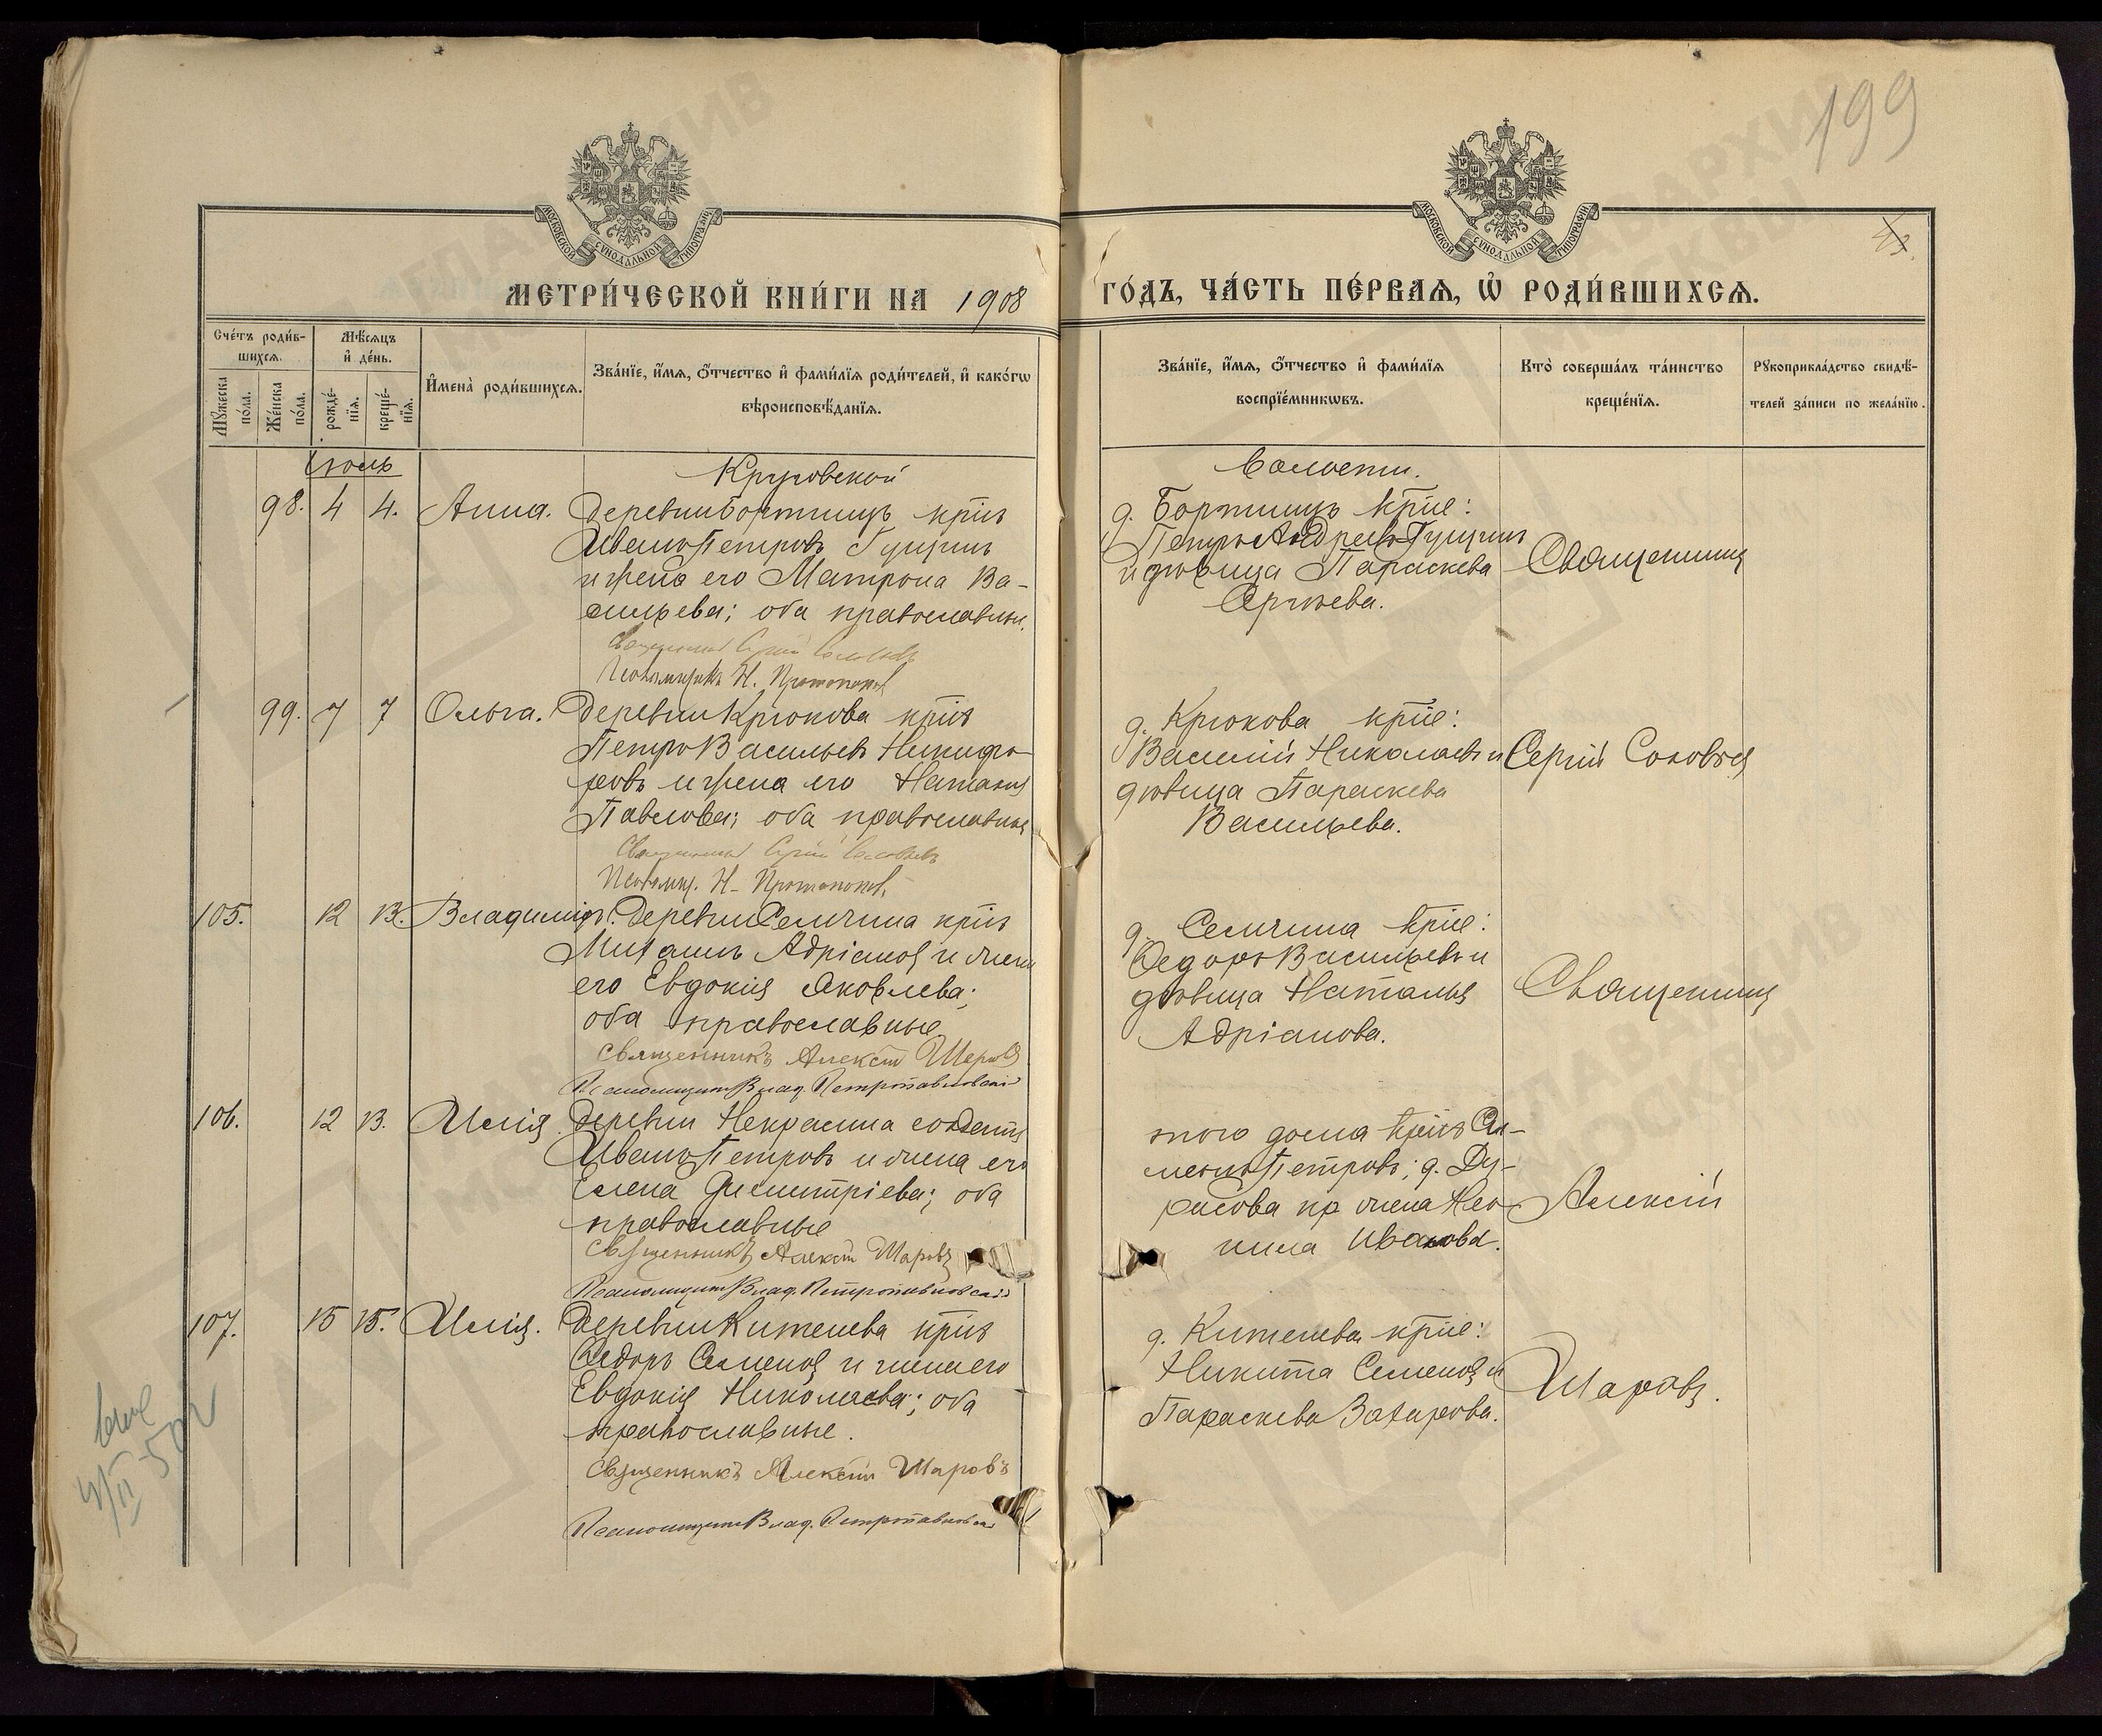 199
43.
МОСКОВСКОЙ СѴНОДАЛЬНОЙ ТИПОГРАФІИ
МОСКОВСКОЙ СѴНОДАЛЬНОЙ ТИПОГРАФІИ
МЕТРИ́ЧЕСКОЙ КНИ́ГИ НА 1908
ГО́ДЪ, ЧА́СТЬ ПЕ́РВАѦ, Ѡ҆ РОДИ́ВШИХСѦ.
Сче́тъ роди́в-
шихсѧ.
Мѣ́сѧцъ
и҆ де́нь.
Мꙋ́жеска
по́ла.
Же́нска
по́ла.
рожде́-
нїѧ.
креще́-
нїѧ.
И҆мена̀ роди́вшихсѧ.
Зва́нїе, и҆́мѧ, ѻ҆́тчество и҆ фами́лїѧ роди́телей, и҆ како́гѡ
вѣроисповѣ́данїѧ.
Зва́нїе, и҆́мѧ, ѻ҆́тчество и҆ фами́лїѧ
воспрїе́мникѡвъ.
Кто̀ соверша́лъ та́инство
креще́нїѧ.
Рꙋкоприкла́дство свидѣ́-
телей за́писи по жела́нїю.
Іюль
Круговской
Волости.
98. 4 4. Анна.
Деревни Бортницъ крⷭ҇нъ
Иванъ Петровъ Гущинъ
и жена его Матрона Ва-
сильева; оба православны.
Священникъ Сергій Соловьевъ
Псаломщикъ Н. Протопопов
д. Бортницъ крⷭ҇не:
Петръ Андреевъ Гущинъ
и дѣвица Параскева
Сергѣева.
Священникъ
99. 7 7 Ольга.
Деревни Крюкова крⷭ҇нъ
Петръ Васильевъ Никифо-
ровъ и жена его Наталия
Павлова; оба православны
Священникъ Сергій Соловьевъ
Псаломщ. Н. Протопопов.
д. Крюкова крⷭ҇не:
Василій Николаевъ и
дѣвица Параскева
Васильева.
Сергій Соловьев
105. 12 13. Владиміръ.
Деревни Селичина крⷭ҇нъ
Михаилъ Адріановъ и жена
его Евдокія Яковлева;
оба православные
Священникъ Алексій Шаровъ
Псаломщикъ Влад. Петропавловскій
д. Селичина крⷭ҇не:
Ѳедоръ Васильевъ и
дѣвица Наталья
Адріанова.
Священникъ
106. 12 13. Илія.
Деревни Некрасина солдатъ
Иванъ Петровъ и жена его
Елена Димитріева; оба
православные
Священникъ Алексій Шаровъ
Псаломщикъ Влад. Петропавловскій
того дома крⷭ҇нъ Си-
меонъ Петровъ; д. Ду-
расова кр жена Нео-
нила Иванова.
Алексій
107. 15 15. Илія.
Деревни Кителева крⷭ҇нъ
Ѳедоръ Семеновъ и жена его
Евдокія Николаева; оба
православные.
Священникъ Алексій Шаровъ
Псаломщикъ Влад. Петропавловскій
д. Кителева крⷭ҇не:
Никита Семеновъ и
Параскева Захарова.
Шаровъ.
ГЛАВАРХИВ
МОСКВЫ